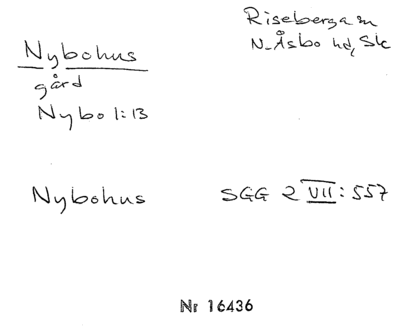 Riseberga sn
N. Åsbo hd, Sk
Nybohus
gård
Nybo 1:13
Nybohus
SGG 2 VII: 557
Nr 16436